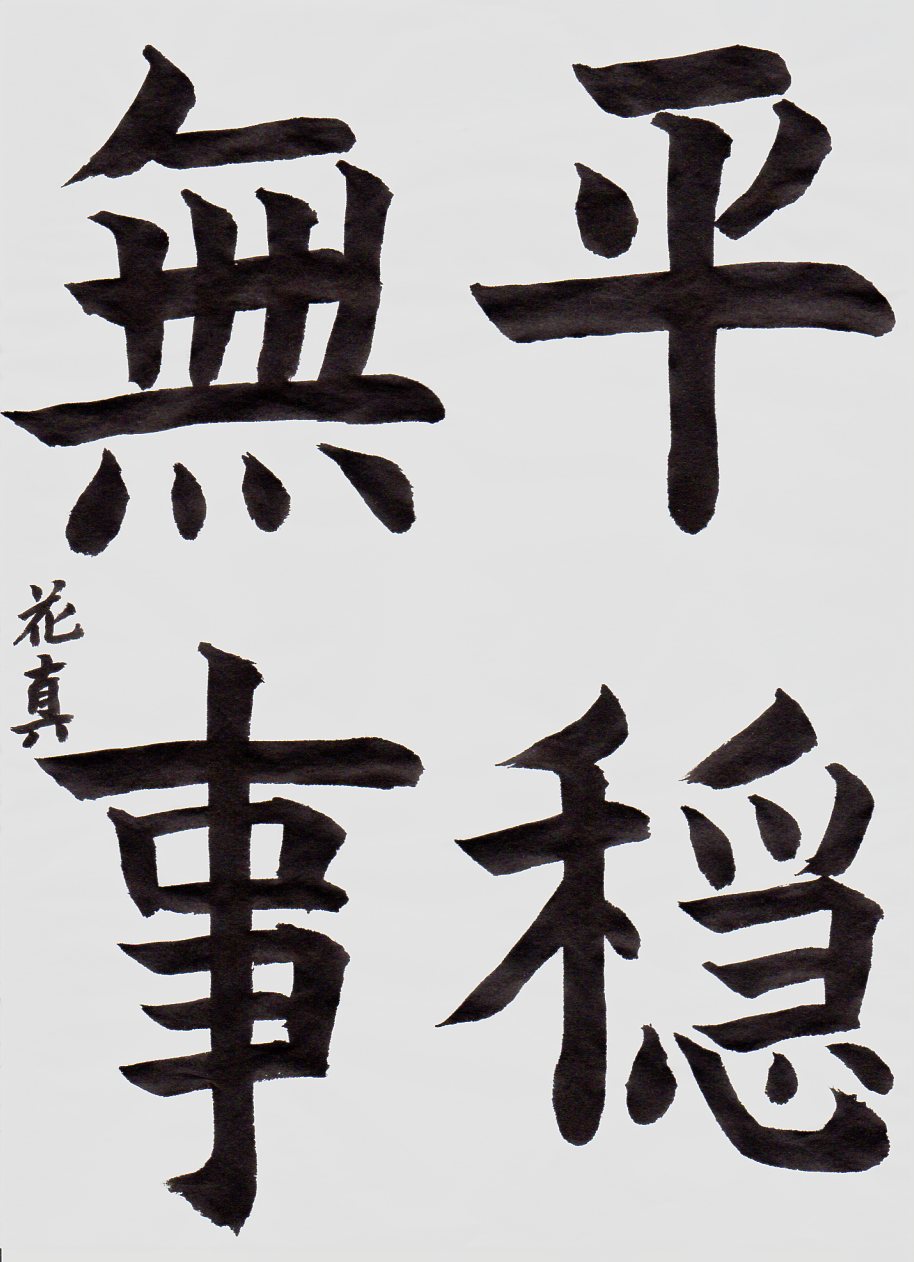 平穏
無事
花真